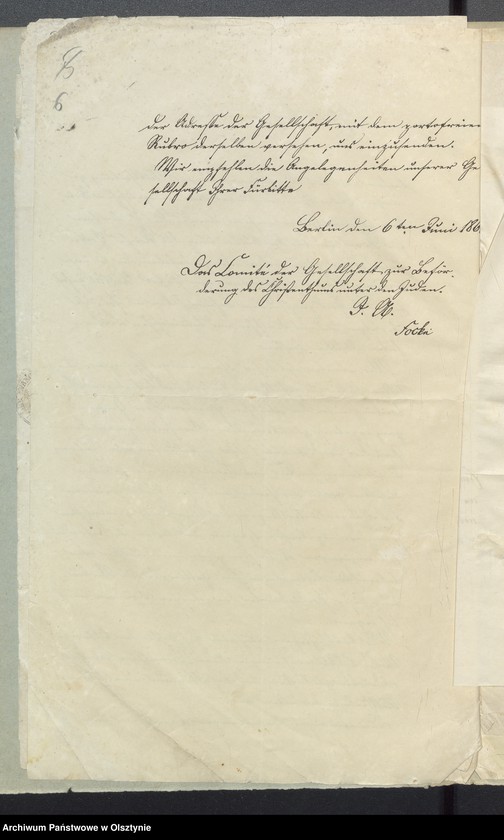 6
der Adresse der Gesellschaft, mit dem portofreien
Rubro derselben versehen, uns einzusenden.
Wir empfehlen die Angelegenheiten unserer Ge
sellschaft Ihrer Fürbitte
Berlin den 6ten Juni 186
Das Comité der Gesellschaft zur Beför-
derung des Christenthums unter den Juden.
I. A.
Focke
Archiwum Państwowe w Olsztynie